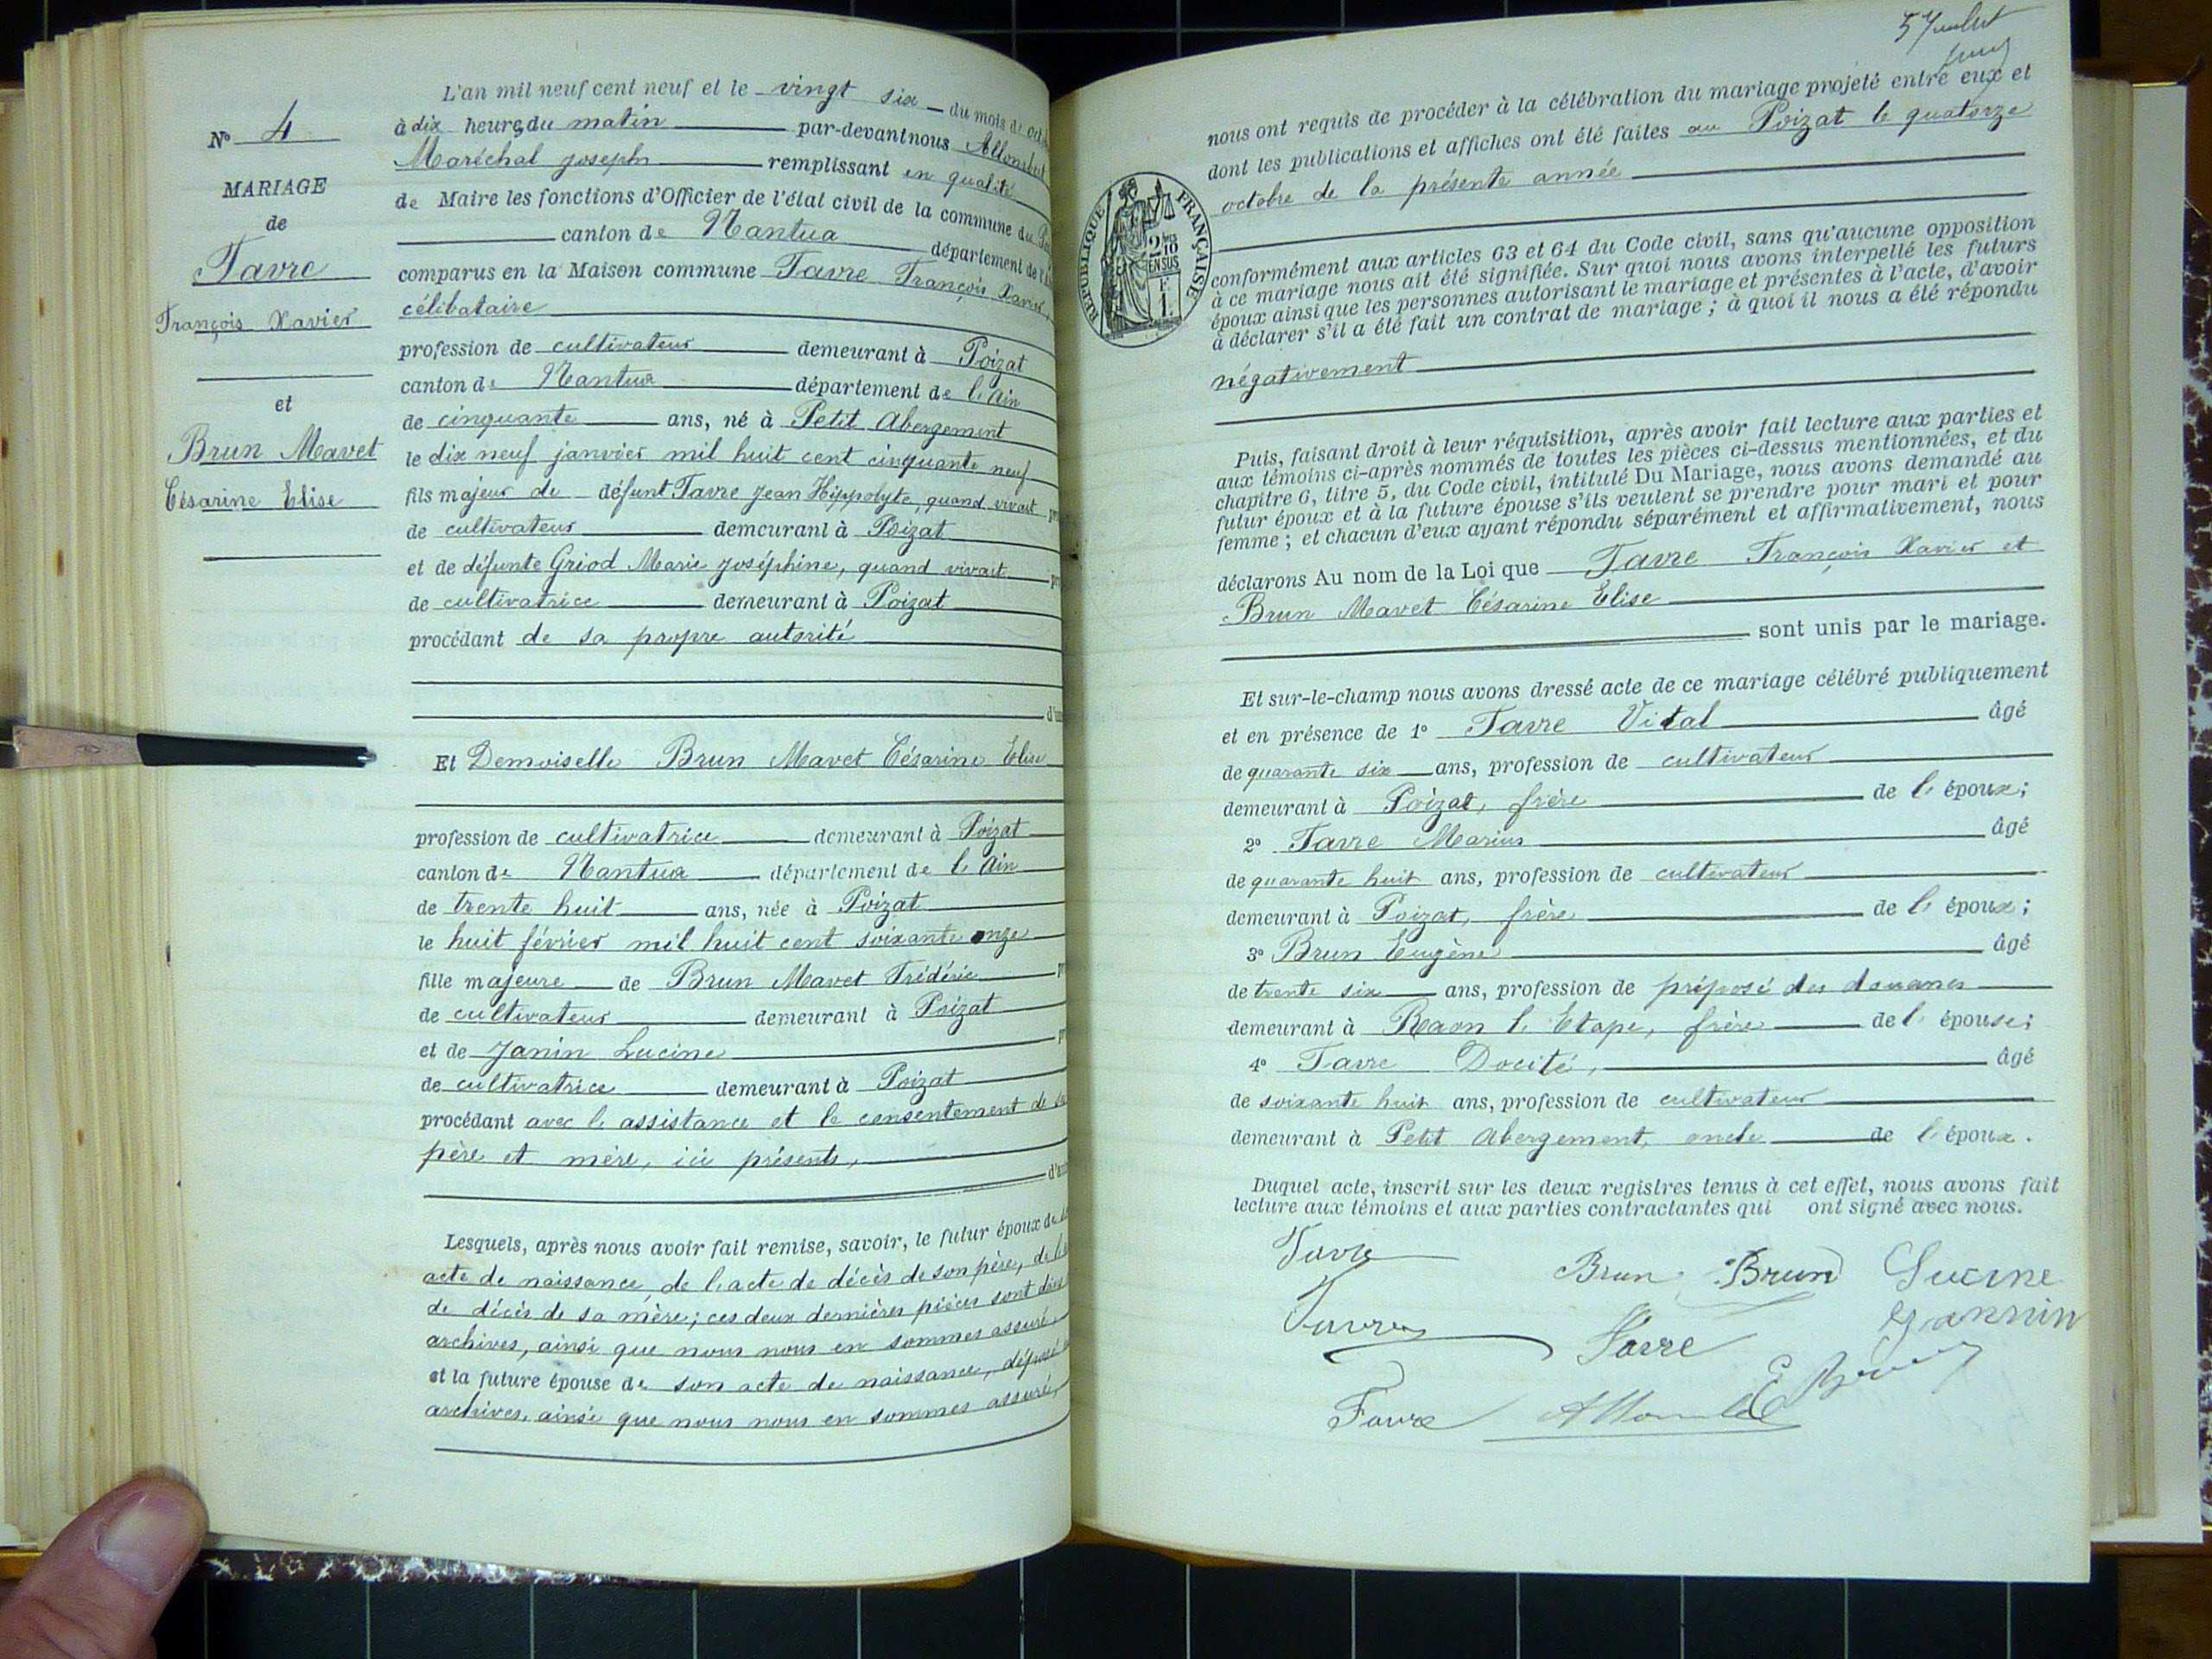 N° 4
MARIAGE
de
Favre
François Xavier
et
Brun Mavet
Césarine Elise
L'an mil neuf cent neuf et le vingt six du mois de
à dix heures du matin par-devant nous
Maréchal Joseph remplissant en qualité
de Maire les fonctions d'Officier de l'état civil de la commune du
canton de Nantua département de
comparus en la Maison commune Favre François Xavier,
célibataire
profession de cultivateur demeurant à Poizat
canton de Nantua département de l'Ain
de cinquante ans, né à Petit Abergement
le dix neuf janvier mil huit cent cinquante neuf
fils majeur de défunt Favre Jean Hippolyte, quand vivait
de cultivateur demeurant à Poizat
et de défunte Griod Marie Joséphine, quand vivait
de cultivatrice demeurant à Poizat
procédant de sa propre autorité
Et Demoiselle Brun Mavet Césarine Elise
profession de cultivatrice demeurant à Poizat
canton de Nantua département de l'Ain
de trente huit ans, née à Poizat
le huit février mil huit cent soixante onze
fille majeure de Brun Mavet Frédéric
de cultivateur demeurant à Poizat
et de Janin Lucine
de cultivatrice demeurant à Poizat
procédant avec l'assistance et le consentement de
père et mère, ici présents,
Lesquels, après nous avoir fait remise, savoir, le futur époux de
acte de naissance, de l'acte de décès de son père, de
de décès de sa mère; ces deux dernières pièces sont
archives, ainsi que nous nous en sommes assuré,
et la future épouse de son acte de naissance, déposé
archives, ainsi que nous nous en sommes assuré,
5 Juillet
nous ont requis de procéder à la célébration du mariage projeté entre eux et
dont les publications et affiches ont été faites au Poizat le quatorze
octobre de la présente année
RÉPUBLIQUE FRANÇAISE
2/10
EN SUS
F.
1.
conformément aux articles 63 et 64 du Code civil, sans qu'aucune opposition
à ce mariage nous ait été signifiée. Sur quoi nous avons interpellé les futurs
époux ainsi que les personnes autorisant le mariage et présentes à l'acte, d'avoir
à déclarer s'il a été fait un contrat de mariage ; à quoi il nous a été répondu
négativement
Puis, faisant droit à leur réquisition, après avoir fait lecture aux parties et
aux témoins ci-après nommés de toutes les pièces ci-dessus mentionnées, et du
chapitre 6, titre 5, du Code civil, intitulé Du Mariage, nous avons demandé au
futur époux et à la future épouse s'ils veulent se prendre pour mari et pour
femme ; et chacun d'eux ayant répondu séparément et affirmativement, nous
déclarons Au nom de la Loi que Favre François Xavier et
Brun Mavet Césarine Elise
sont unis par le mariage.
Et sur-le-champ nous avons dressé acte de ce mariage célébré publiquement
et en présence de 1° Favre Vital âgé
de quarante six ans, profession de cultivateur
demeurant à Poizat, frère de l'époux;
2° Favre Marius âgé
de quarante huit ans, profession de cultivateur
demeurant à Poizat, frère de l'époux;
3° Brun Eugène âgé
de trente six ans, profession de préposé des douanes
demeurant à Raon l'Etape, frère de l'épouse;
4° Favre Docité, âgé
de soixante huit ans, profession de cultivateur
demeurant à Petit Abergement, oncle de l'époux.
Duquel acte, inscrit sur les deux registres tenus à cet effet, nous avons fait
lecture aux témoins et aux parties contractantes qui ont signé avec nous.
Favre Brun Brun Lucine
Favre Favre Jannin
Favre E Brun